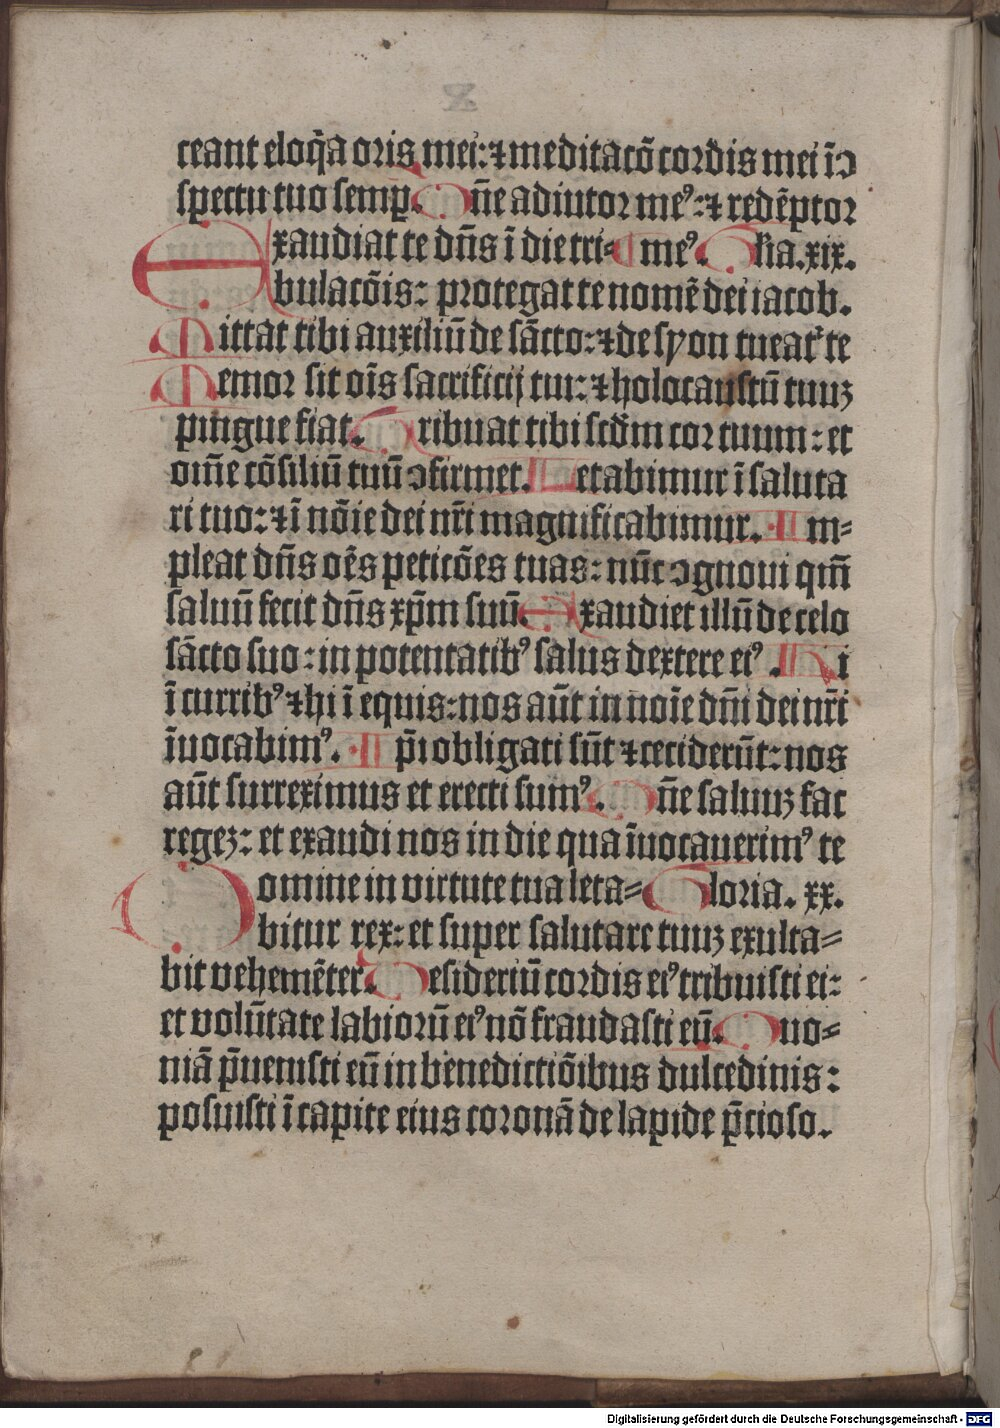 ceant eloq̃a oris mei: ⁊ meditacõ cordis mei ĩↄ
spectu tuo semp̲. Dñe adiutor meꝰ: ⁊ redẽptor
Exaudiat te dñs ĩ die tri⸗ meꝰ. Gl̃ia. xix.
bulacõis: protegat te nomẽ dei iacob.
Mittat tibi auxiliũ de sãcto: ⁊ de syon tueat᷑ te
Memor sit oĩs sacrificij tui: ⁊ holocaustũ tuuꝫ
pingue fiat. Tribuat tibi scd̃m cor tuum: et
om̃e cõsiliũ tuũ ↄfirmet. Letabimur ĩ saluta
ri tuo: ⁊ ĩ nõie dei nr̃i magnificabimur. Im⸗
pleat dñs oẽs peticões tuas: nũc ↄgnoui qm̃
saluũ fecit dñs xp̃m suũ. Exaudiet illũ de celo
sãcto suo: in potentatibꝰ salus dextere eiꝰ. Hi
ĩ curribꝰ ⁊ hi ĩ equis: nos aũt in noĩe dñi dei nr̃i
ĩuocabimꝰ. Ip̃i obligati sũt ⁊ ceciderũt: nos
aũt surreximus et erecti sumꝰ. Dñe saluuꝫ fac
regeꝫ: et exaudi nos in die qua ĩuocauerimꝰ te
Domine in virtute tua leta⸗ Gloria. xx.
bitur rex: et super salutare tuuꝫ exulta⸗
bit vehemẽter. Desideriũ cordis eiꝰ tribuisti ei:
et volũtate labiorũ eiꝰ nõ fraudasti eũ. Quo⸗
niã p̃uenisti eũ in benedictiõibus dulcedinis:
posuisti ĩ capite eius coronã de lapide p̃cioso.
Digitalisierung gefördert durch die Deutsche Forschungsgemeinschaft - DFG